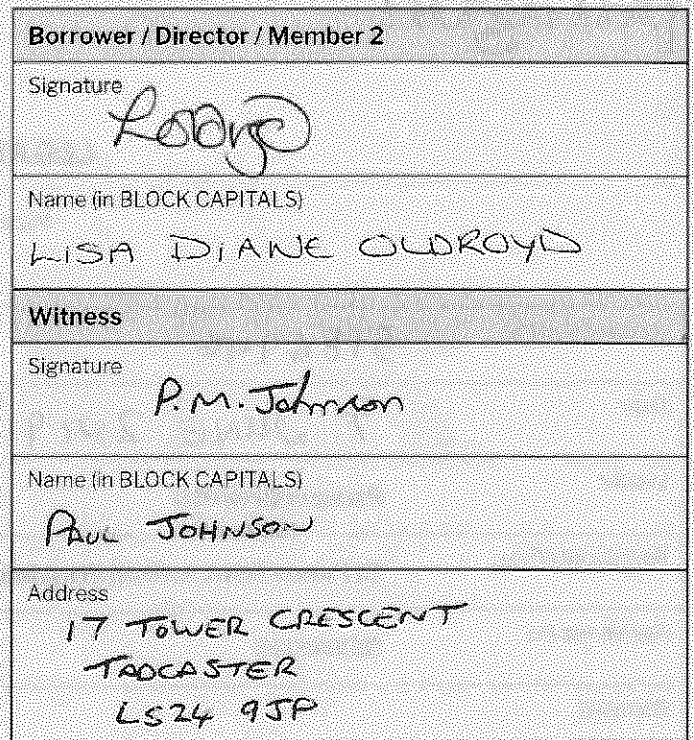 Borrower / Director / Member 2
Signature
Name (in BLOCK CAPITALS)
LISA DIANE OLDROYD
Witness
Signature
P.M. Johnson
Name (in BLOCK CAPITALS)
PAUL JOHNSON
Address
17 TOWER CRESCENT
TADCASTER
LS24 9JP